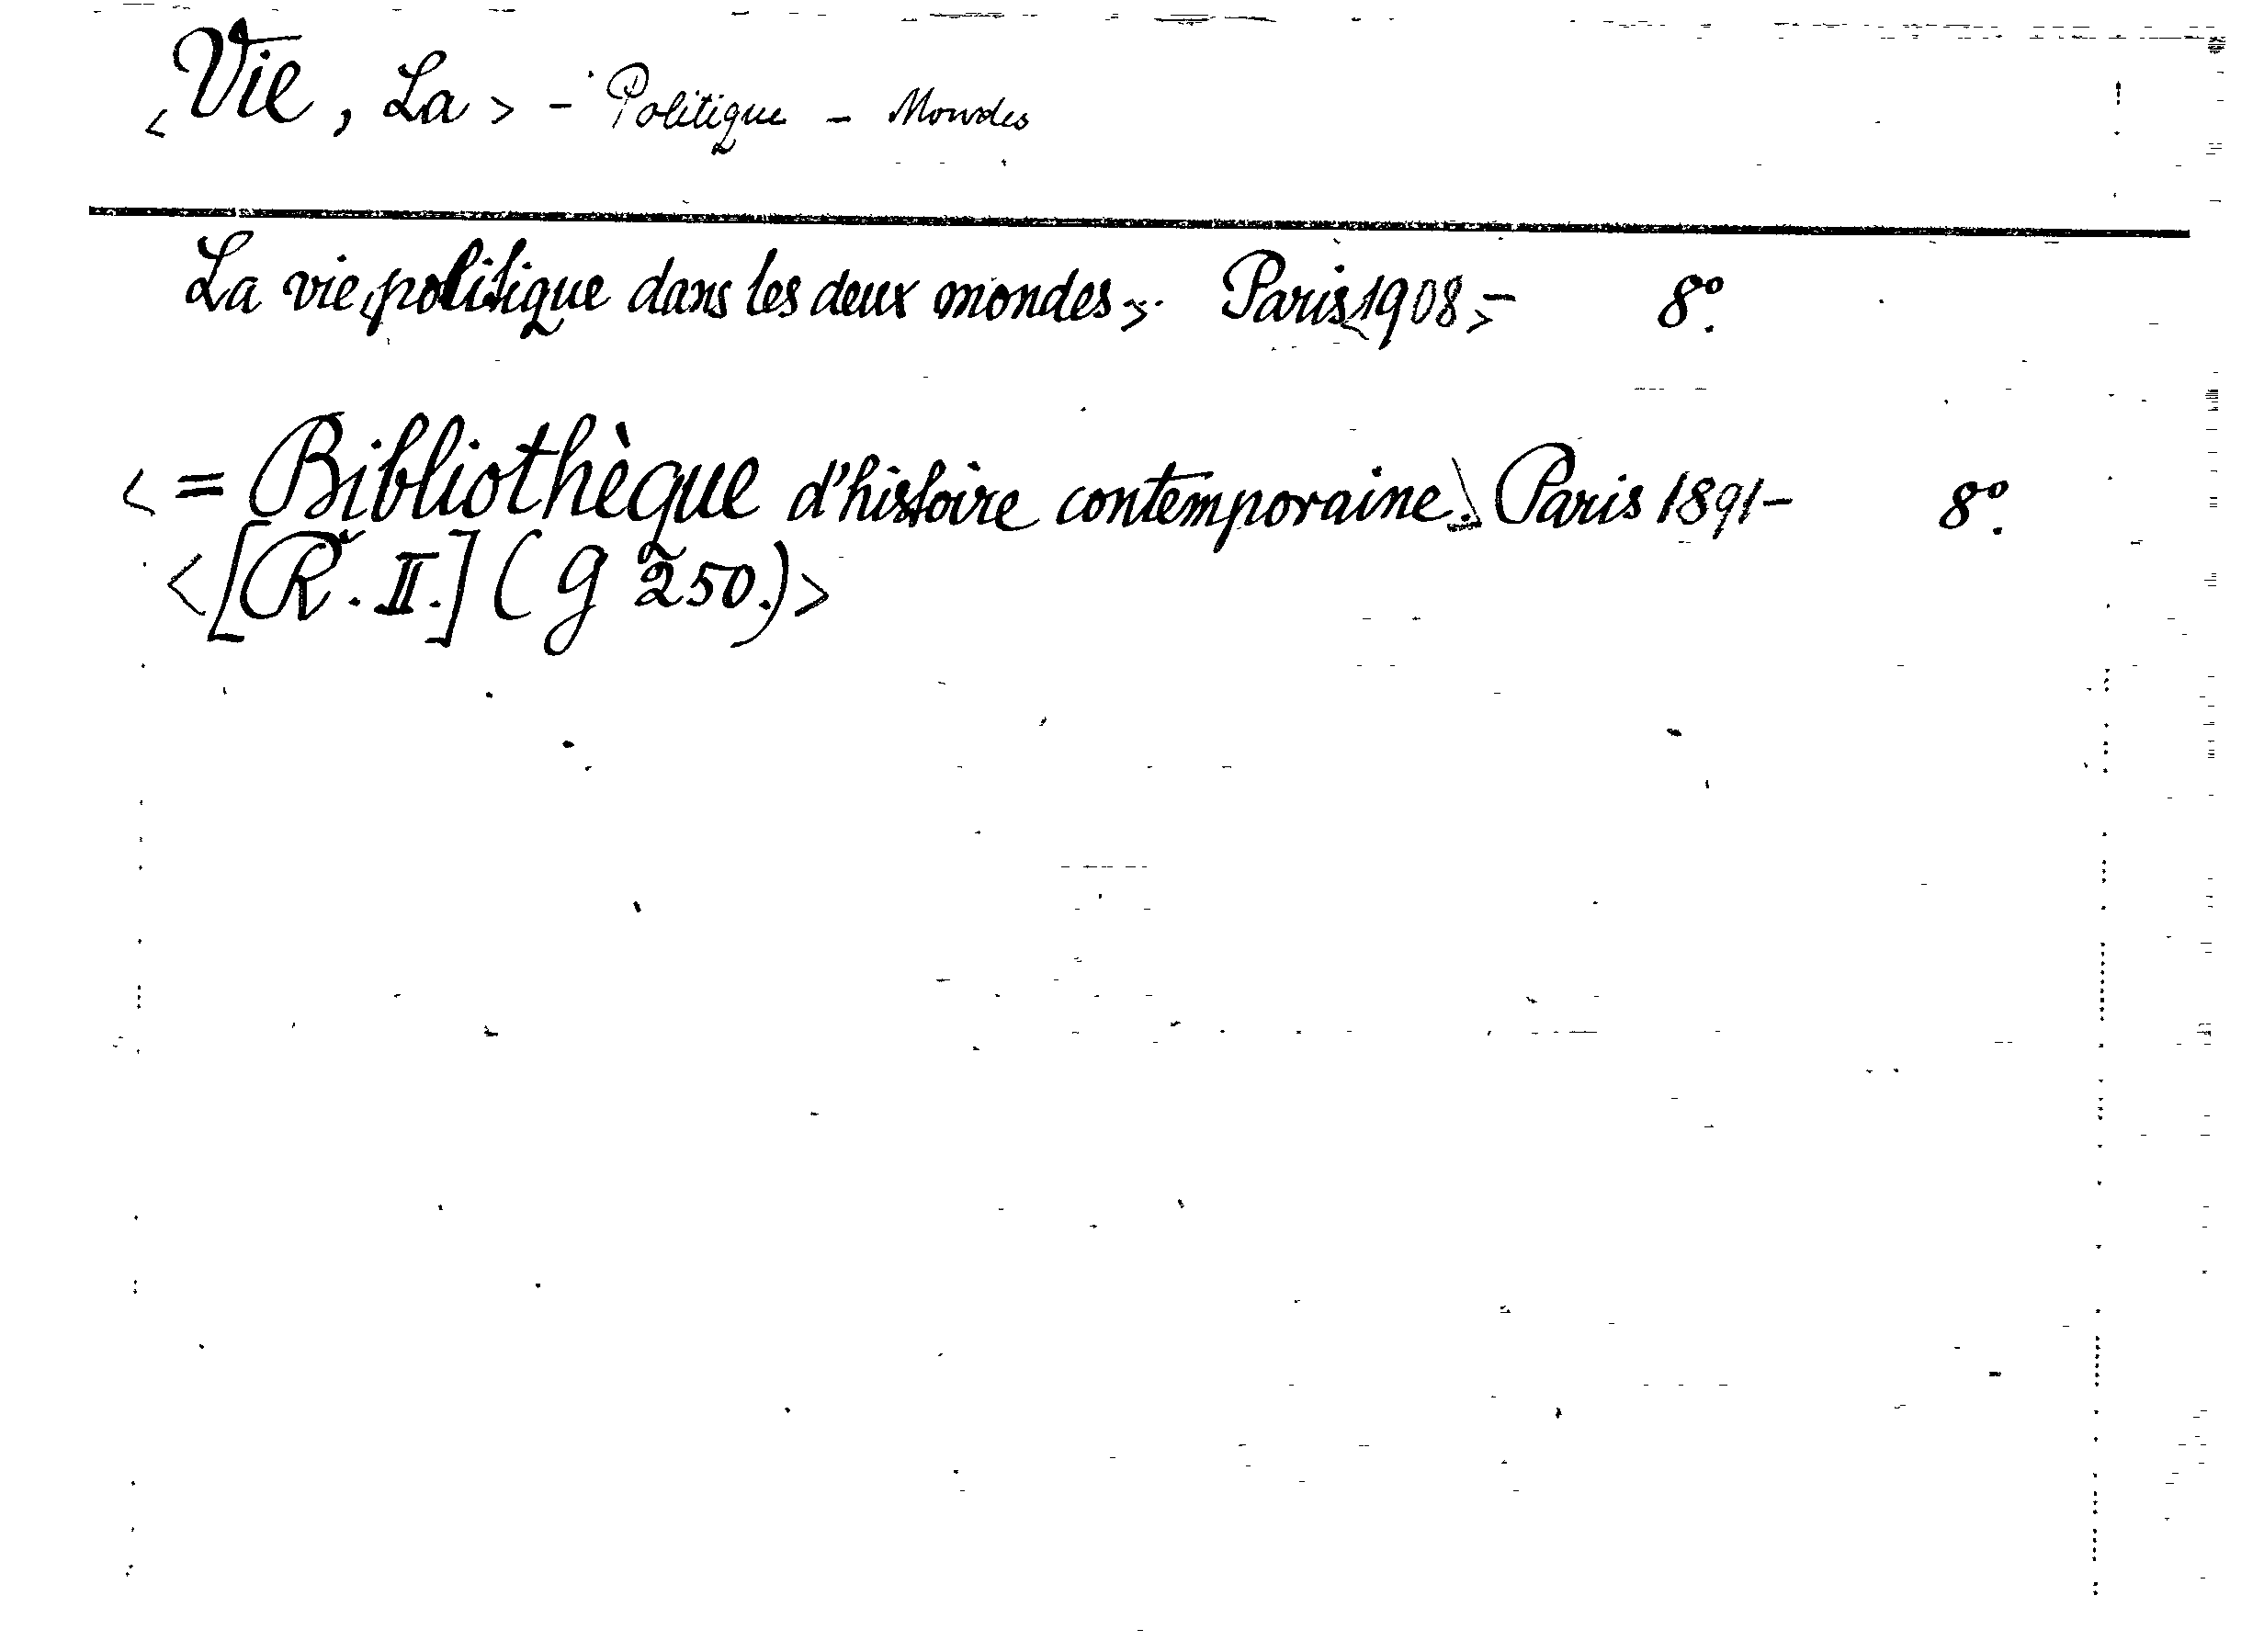 <Vie, La> - Politique - Mondes
La vie <politique dans les deux mondes.> Paris <1908> - 8º.
< = Bibliothèque d'histoire contemporaine.> Paris 1891- 8º.
<[R. II.] (g 250.)>